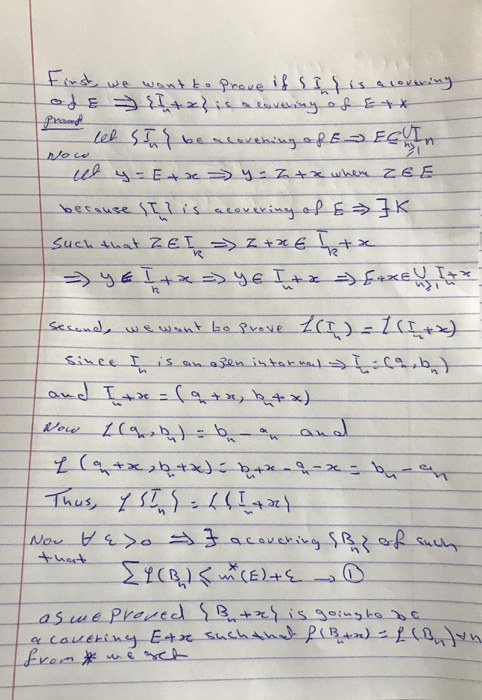 First, we want to prove if {I_n} is a covering
of E ⇒ {I_n+x} is a covering of E+x
proof
let {I_n} be a covering of E ⇒ E⊆ ⋃_{n≥1} I_n
Now
let y = E+x ⇒ y = Z+x when Z∈E
because {I_n} is a covering of E ⇒ ∃ K
such that Z∈I_k ⇒ Z+x ∈ I_k+x
⇒ y∈ I_k+x ⇒ y∈ I_n+x ⇒ E+x∈ ⋃_{n≥1} I_n+x
second, we want to prove ℓ(I_n) = ℓ(I_n+x)
Since I_n is an open interval ⇒ I_n = (a_n, b_n)
and I_n+x = (a_n+x, b_n+x)
Now ℓ(a_n, b_n) = b_n - a_n and
ℓ(a_n+x, b_n+x) = b_n+x - a_n - x = b_n - a_n
Thus, ℓ{I_n} = ℓ{I_n+x}
Now ∀ ε>0 ⇒ ∃ a covering {B_n} of such
that
∑ ℓ(B_n) ≤ m*(E)+ε → ①
as we proved {B_n+x} is going to be
a covering E+x such that ℓ(B_n+x) = ℓ(B_n) ∀n
from * we get